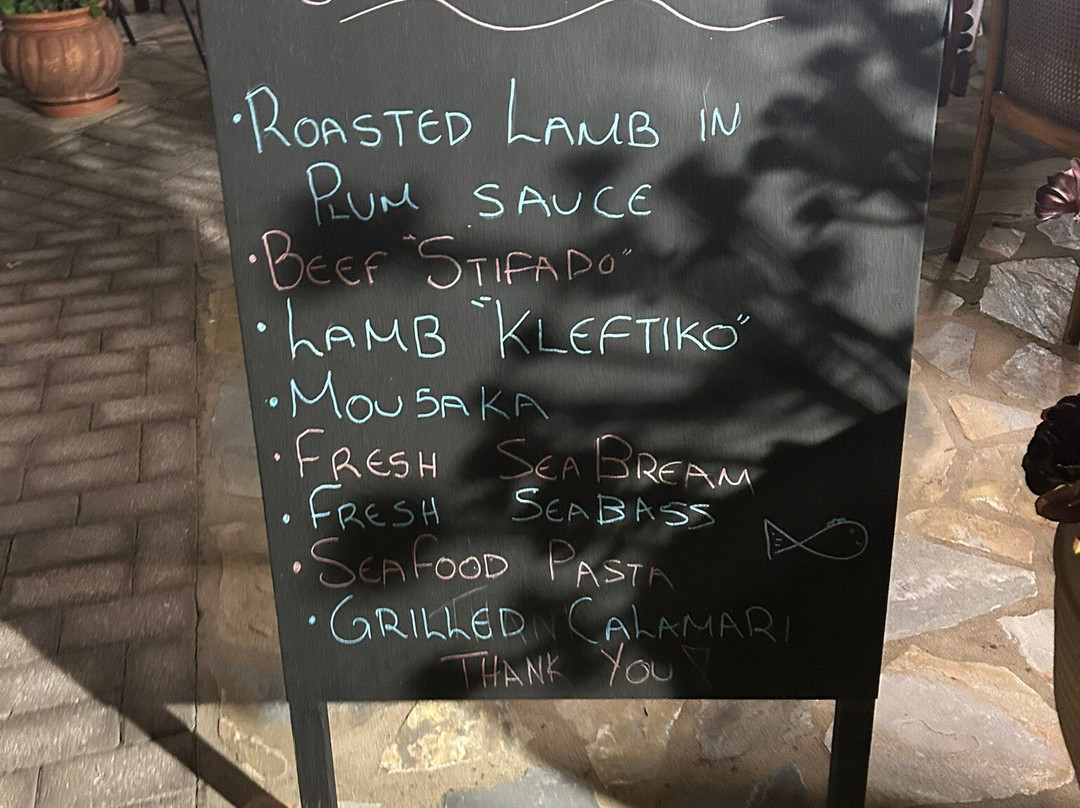 · ROASTED LAMB IN
PLUM SAUCE
· BEEF "STIFADO"
· LAMB "KLEFTIKO"
· MOUSAKA
· FRESH SEA BREAM
· FRESH SEABASS
· SEAFOOD PASTA
· GRILLED CALAMARI
THANK YOU